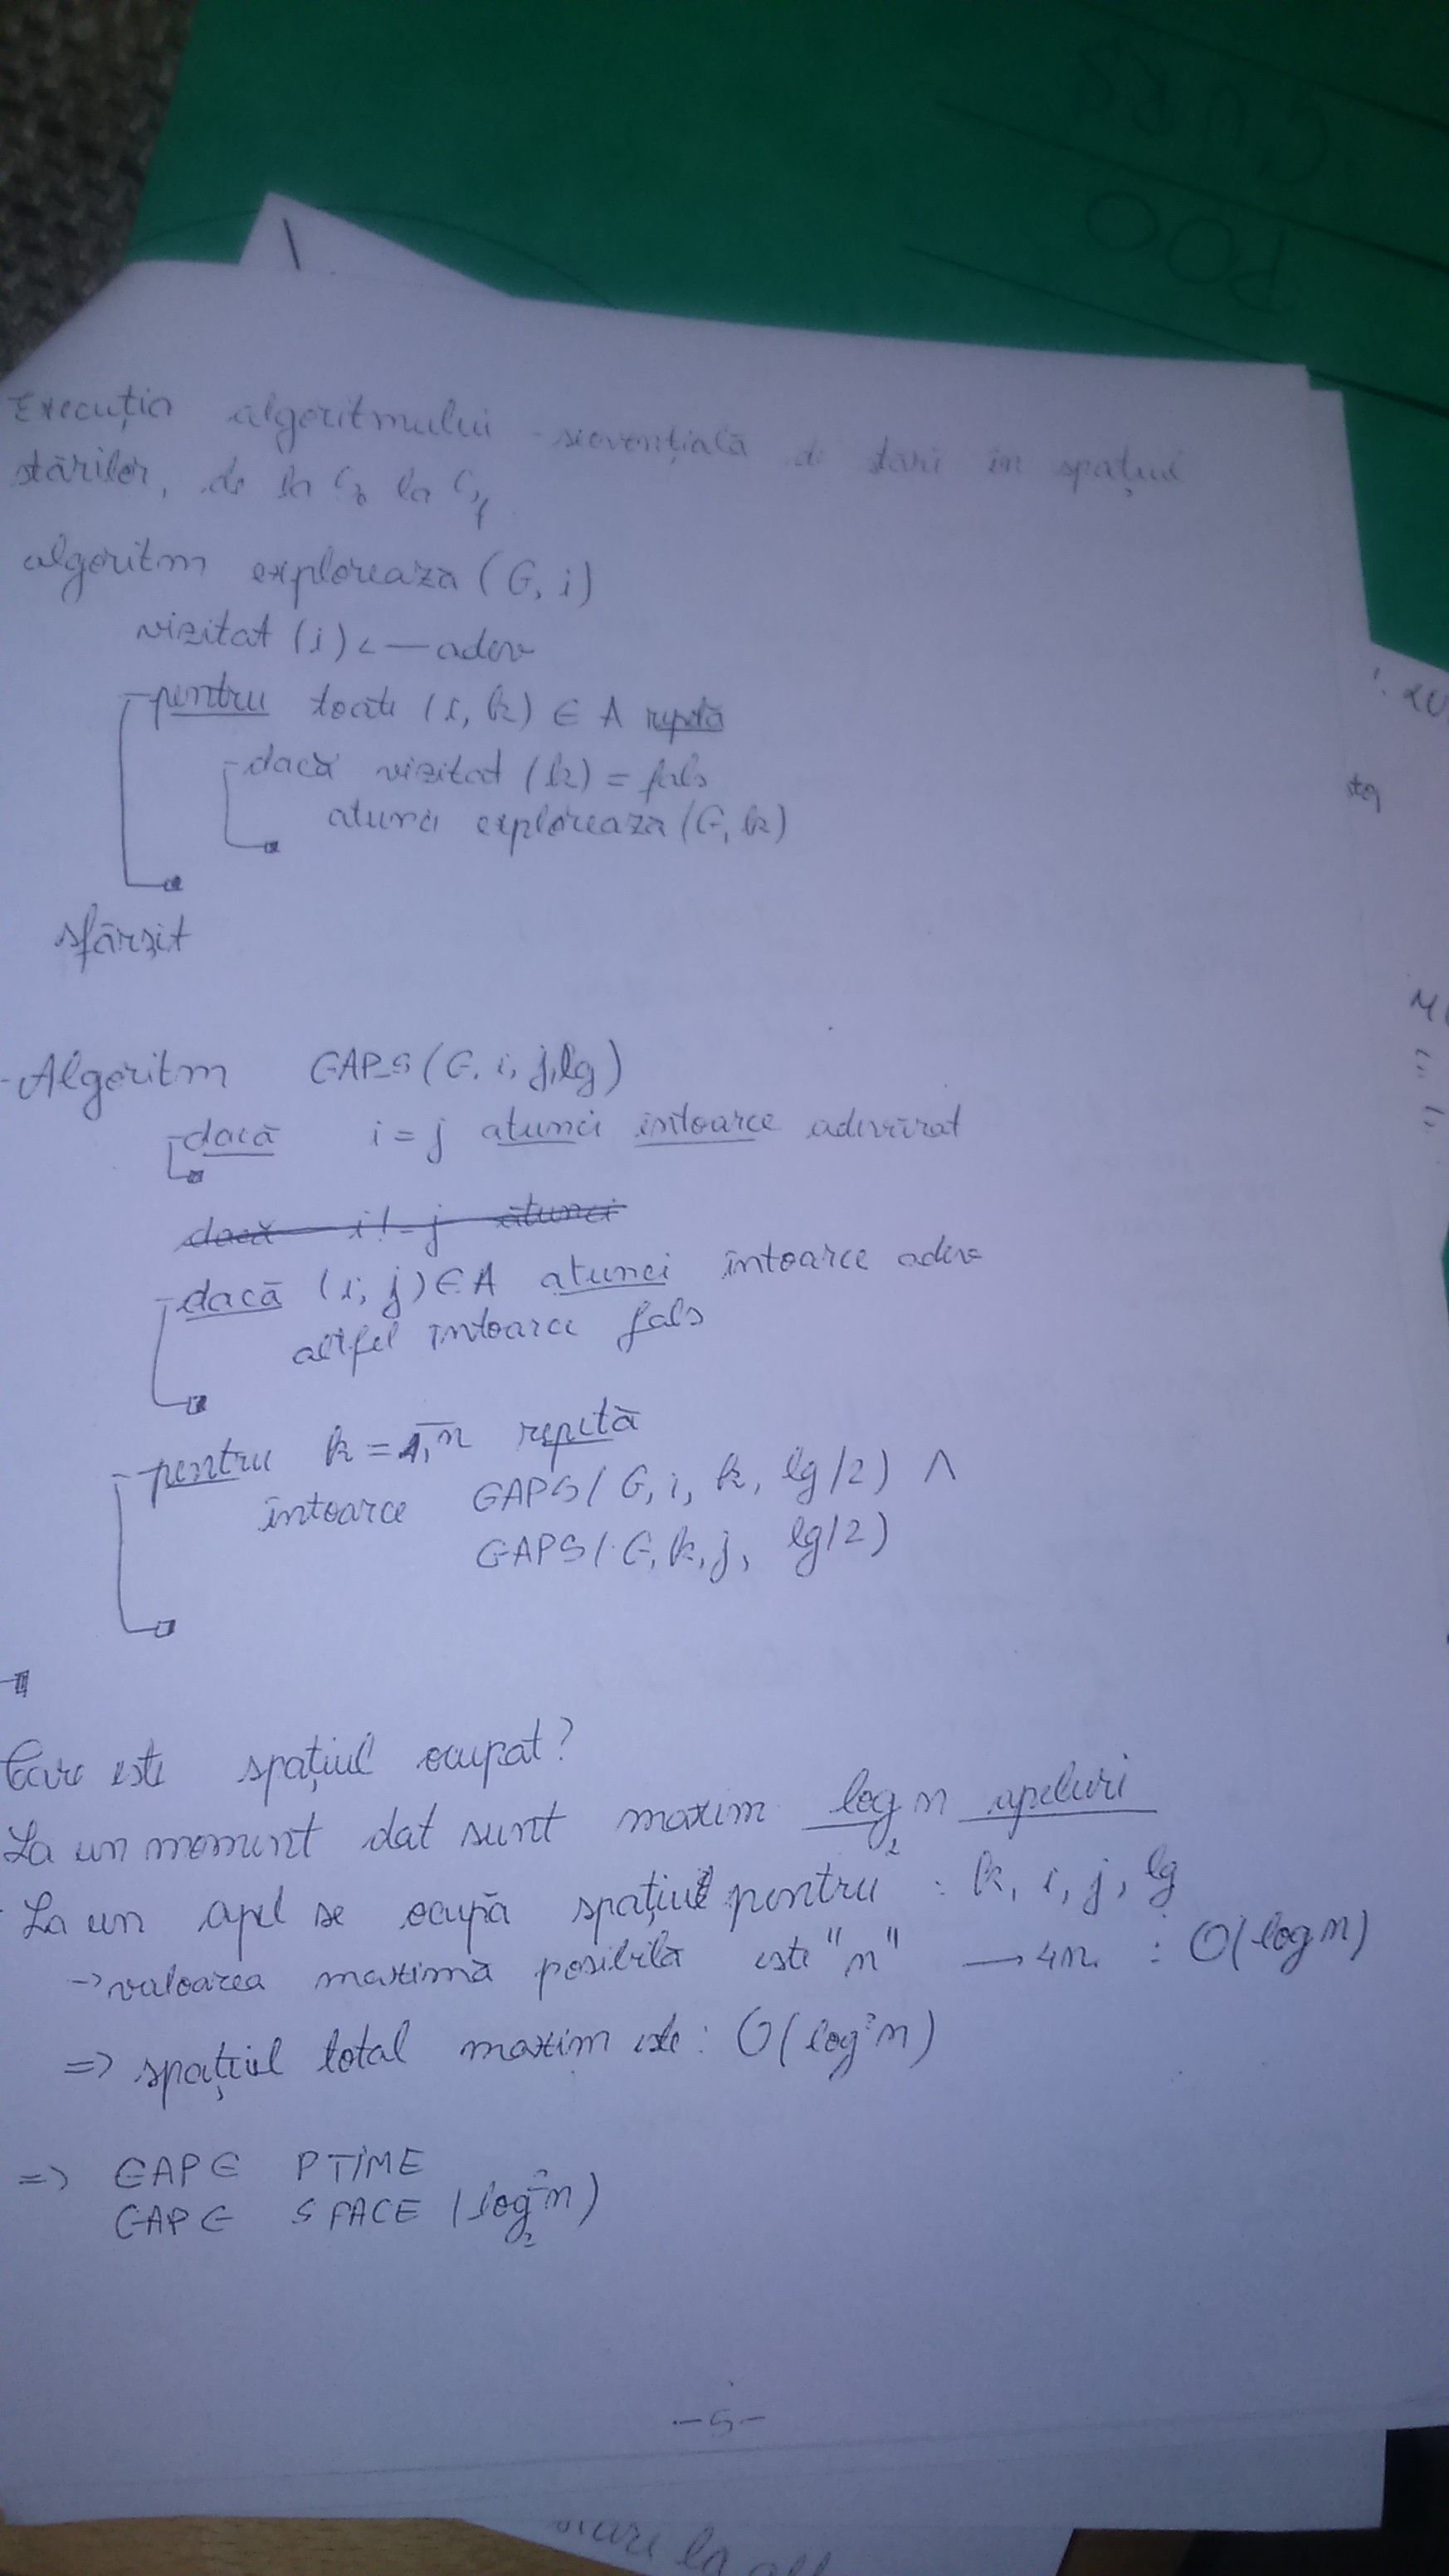 CURS
POO
Execuția algoritmului - secvențială de stări în spațiul
stărilor, de la C₀ la Cf
algoritm explorează (G, i)
vizitat (i) <— adev
pentru toate (i, k) ∈ A repetă
dacă vizitat (k) = fals
atunci explorează (G, k)
sfârșit
- Algoritm GAPS (G, i, j, lg)
dacă i = j atunci întoarce adevărat
dacă i != j atunci
dacă (i, j) ∈ A atunci întoarce adev
altfel întoarce fals
pentru k = 1,n repetă
întoarce GAPS( G, i, k, lg/2) ∧
GAPS( G, k, j, lg/2)
Care este spațiul ocupat?
La un moment dat sunt maxim log₂ n apeluri
La un apel se ocupă spațiul pentru : k, i, j, lg
-> valoarea maximă posibilă este "n" —> 4n : O(log n)
=> spațiul total maxim este : O(log²n)
=> GAP ∈ PTIME
GAP ∈ SPACE (log₂²n)
- 5 -
la